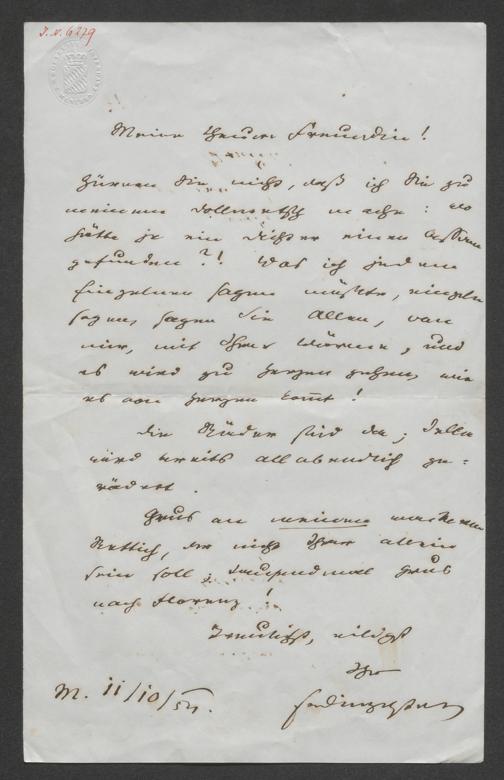 J. N. 6279
Meine theure Freundin!
Zürnen Sie nicht, daß ich Sie zu
meinem Dollmetsch mache: wo
hätte je ein Dichter einen
gefunden?! Was ich jedem
Einzelnen sagen müßte, einzeln
sagen, sagen Sie Allen, von
mir, mit Ihrer Wärme, und
es wird zu Herzen gehen, wie
es von Herzen kom̅t!
Die Räder sind da; Tell
wird bereits allabendlich ge-
rädert.
Grus an meinen wackeren
Rettich, der nicht Ihrer allein
sein soll; tausendmal Grus
nach Florenz!
Treulichst, eiligst
Ihr
M. 11/10/54.